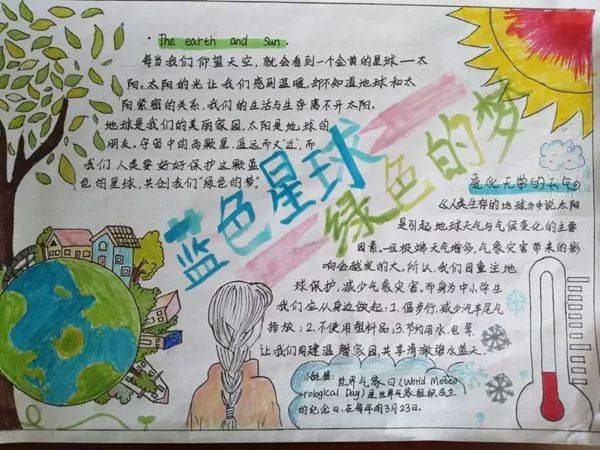 The earth and sun.
每当我们仰望天空,就会看到一个金黄的星球——太
阳。太阳的光让我们感到温暖,却不知道地球和太
阳紧密的关系,我们的生活与生存离不开太阳。
地球是我们的美丽家园,太阳是地球的
朋友,宇宙中的两颗星,虽远而又"近",而
我们人类要好好保护这颗蓝
色的星球,共创我们"绿色的梦"。
蓝色星球
绿色的梦
变化无常的天气
《人类生存的地球》中说太阳
是引起地球天气与气候变化的主要
因素。一旦极端天增多,气象灾害带来的影
响会越发的大。所以,我们因重主地
球保护,减少气象灾害,而身为中小学生
我们应从身边做起:1.偏步行,减少汽车尾气
排放;2.不使用塑料品;3.节约用水、电等.
让我们同建温馨家园,共享清澈碧水蓝天.
小链接:世界气象日(World Meteo
rological Day)是世界气象组织成立
的纪念日,在每年的3月23日.